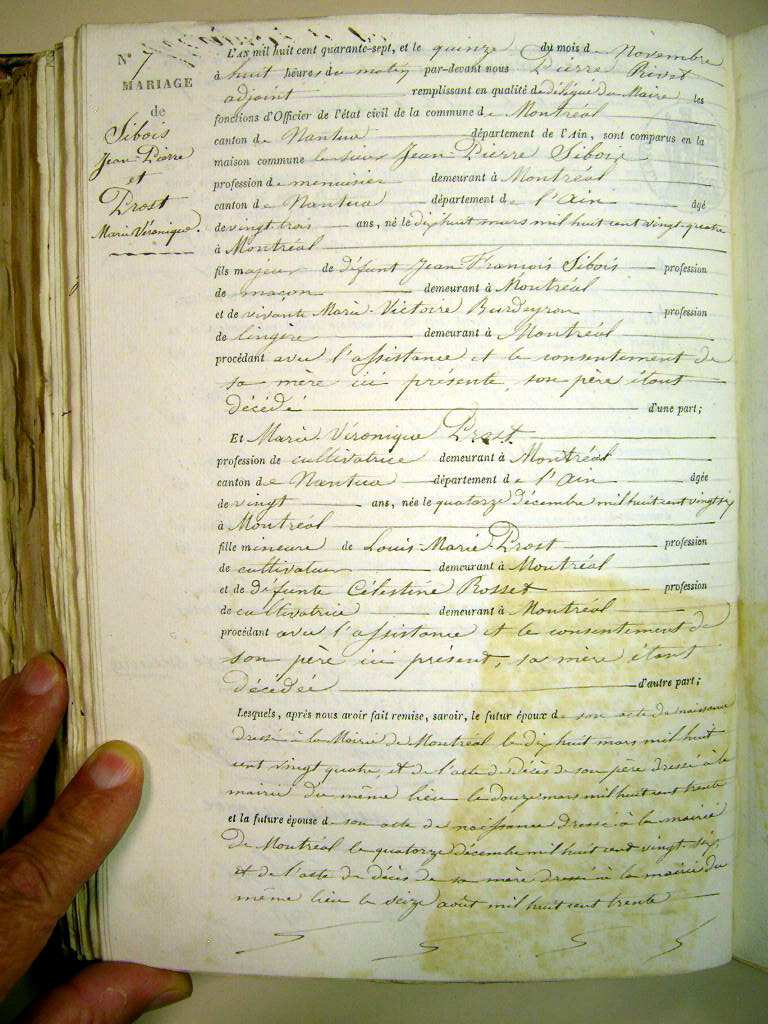 N° 7
MARIAGE
de
Sibois
Jean-Pierre
et
Prost
Marie Véronique.
L'AN mil huit cent quarante-sept, et le quinze du mois de Novembre
à huit heures du matin par-devant nous Pierre Rivet
adjoint remplissant en qualité de délégué du Maire les
fonctions d'Officier de l'état civil de la commune de Montréal
canton de Nantua département de l'Ain, sont comparus en la
maison commune le sieur Jean-Pierre Sibois
profession de menuisier demeurant à Montréal
canton de Nantua département de l'Ain âgé
de vingt trois ans, né le dix huit mars mil huit cent vingt-quatre
à Montréal
fils majeur de défunt Jean-François Sibois profession
de maçon demeurant à Montréal
et de vivante Marie-Victoire Burdeyron profession
de lingère demeurant à Montréal
procédant avec l'assistance et le consentement de
sa mère ici présente, son père étant
décédé d'une part;
ET Marie-Véronique Prost
profession de cultivatrice demeurant à Montréal
canton de Nantua département de l'Ain âgée
de vingt ans, née le quatorze décembre mil huit cent vingt six
à Montréal
fille mineure de Louis-Marie Prost profession
de cultivateur demeurant à Montréal
et de défunte Célestine Rosset profession
de cultivatrice demeurant à Montréal
procédant avec l'assistance et le consentement de
son père ici présent, sa mère étant
décédée d'autre part;
Lesquels, après nous avoir fait remise, savoir, le futur époux de son acte de naissance
dressé à la Mairie de Montréal le dix huit mars mil huit
cent vingt quatre, et de l'acte de décès de son père dressé à la
mairie du même lieu le douze mars mil huit cent trente
et la future épouse de son acte de naissance dressé à la mairie
de Montréal le quatorze décembre mil huit cent vingt six,
et de l'acte de décès de sa mère dressé à la mairie du
même lieu le seize août mil huit cent trente